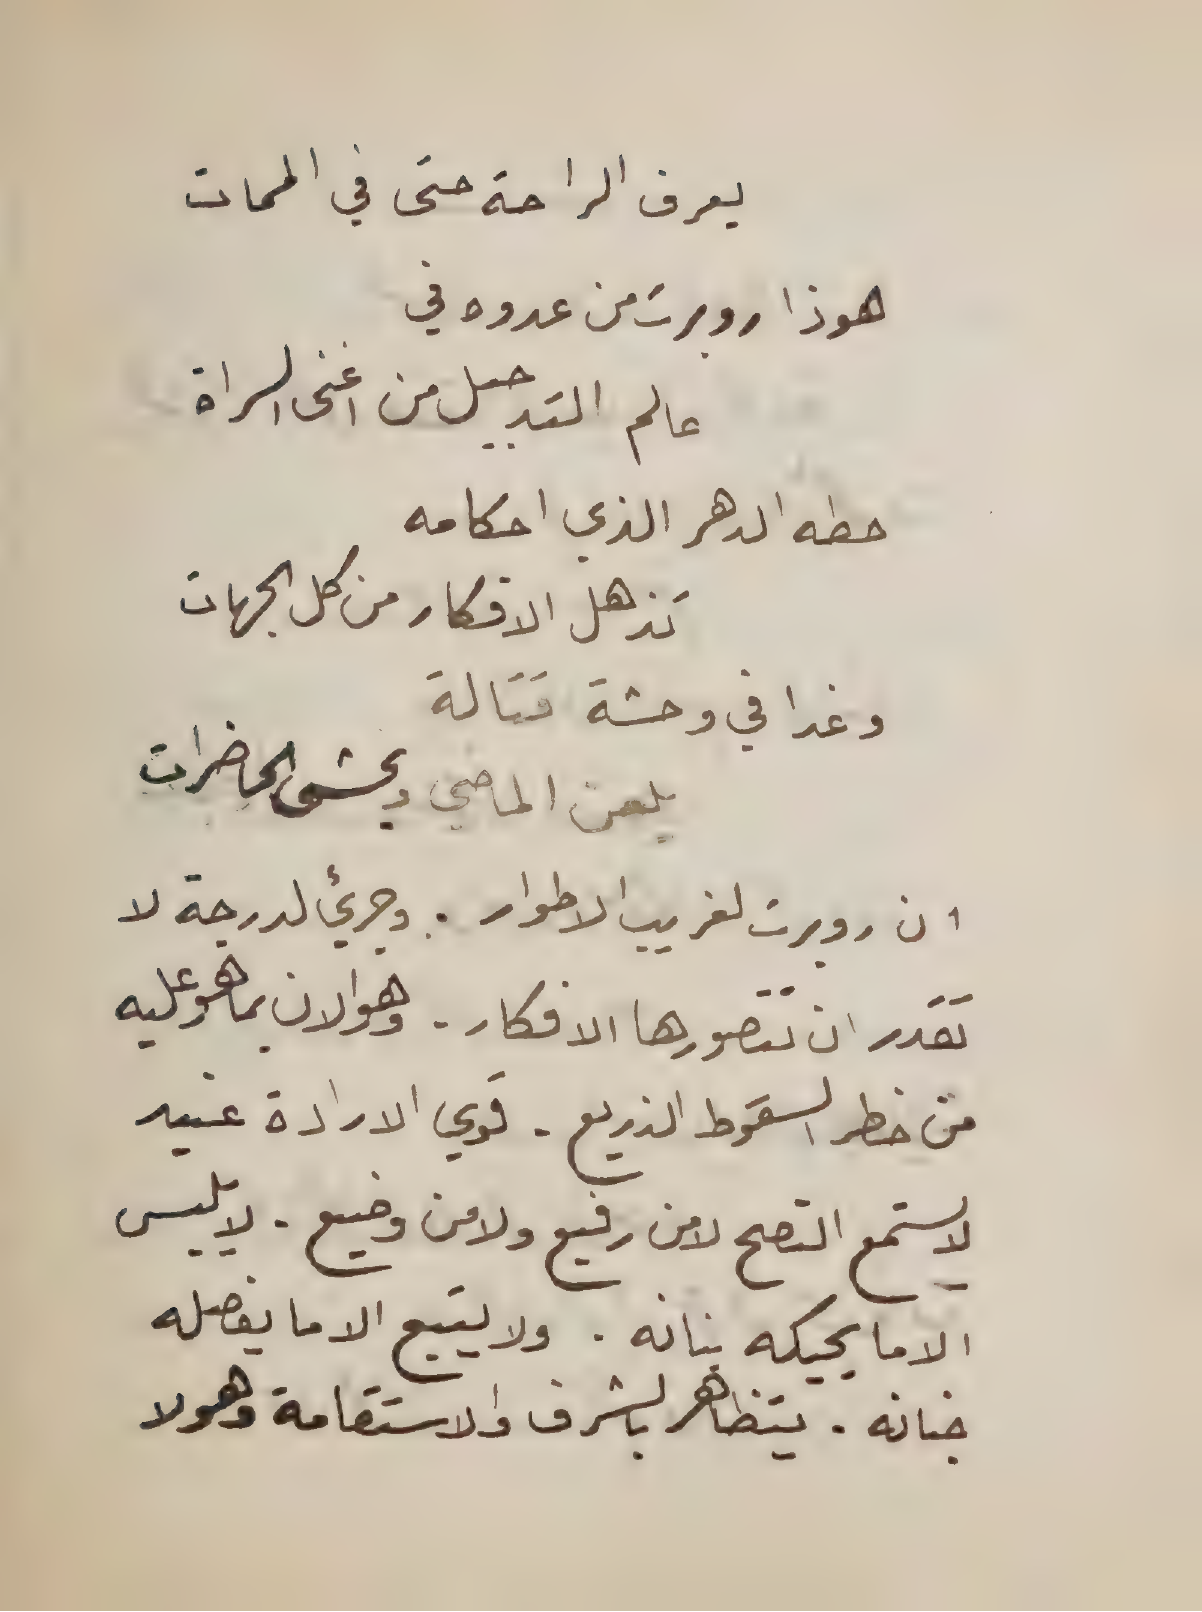 يعرف الراحة حتى في الممات
هوذا روبرت من عدوه في
عالم التدجيل من اغنى السراة
حطه الدهر الذي احكامه
تذهل الافكار من كل الجهات
وغدا في وحشة قتالة
يلعن الماضي ويخشى الحاضرات
ان روبرت لغريب الاطوار . وجريئ لدرجة لا
تقدر ان تتصورها الافكار . وهو الان بما هو عليه
من خطر السقوط الذريع . قوي الارادة عنيد
لا يستمع النصح لا من رفيع ولا من وضيع . لا يلبس
الا ما يحيكه بنانه . ولا يتبع الا ما يفصله
جنانه . يتظاهر بالشرف والاستقامة وهو لا